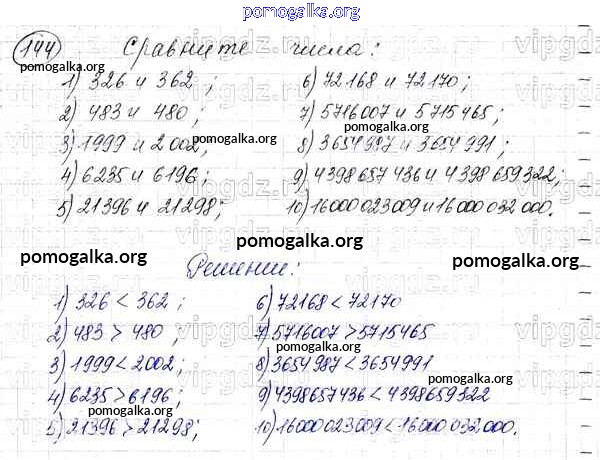 pomogalka.org
144 Сравните числа:
1) 326 и 362;
2) 483 и 480;
3) 1999 и 2002;
4) 6235 и 6196;
5) 21396 и 21298;
6) 72168 и 72170;
7) 5716007 и 5715465;
8) 3654987 и 3654991;
9) 4398657436 и 4398659322;
10) 16000023009 и 16000032000.
pomogalka.org
Решение:
1) 326 < 362;
2) 483 > 480;
3) 1999 < 2002;
4) 6235 > 6196;
5) 21396 > 21298;
6) 72168 < 72170
7) 5716007 > 5715465
8) 3654987 < 3654991
9) 4398657436 < 4398659322
10) 16000023009 < 16000032000.
pomogalka.org
vipgdz.ru